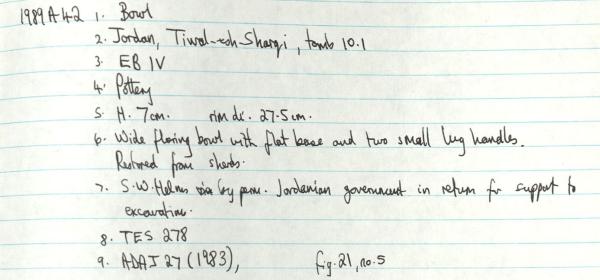 1989 A 42 1. Bowl
2. Jordan, Tiwal-esh-Sharqi, tomb 10.1
3. EB IV
4. Pottery
5. H. 7cm. rim di. 27.5 cm.
6. Wide flaring bowl with flat base and two small lug handles.
Restored from sherds.
7. S.W. Helms by perm. Jordanian government in return for support to
excavation.
8. TES 278
9. ADAJ 27 (1983), fig. 21, no. 5